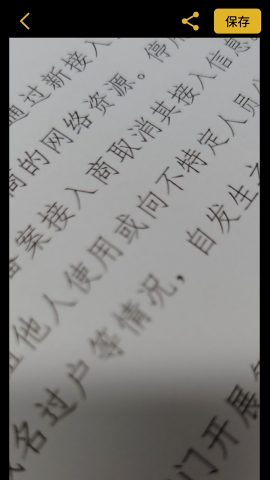 保存
通过新接入
商的网络资源。停
备案接入商取消其接入信息
他人使用或向不特定人员
名过户等情况，自发生之
门开展